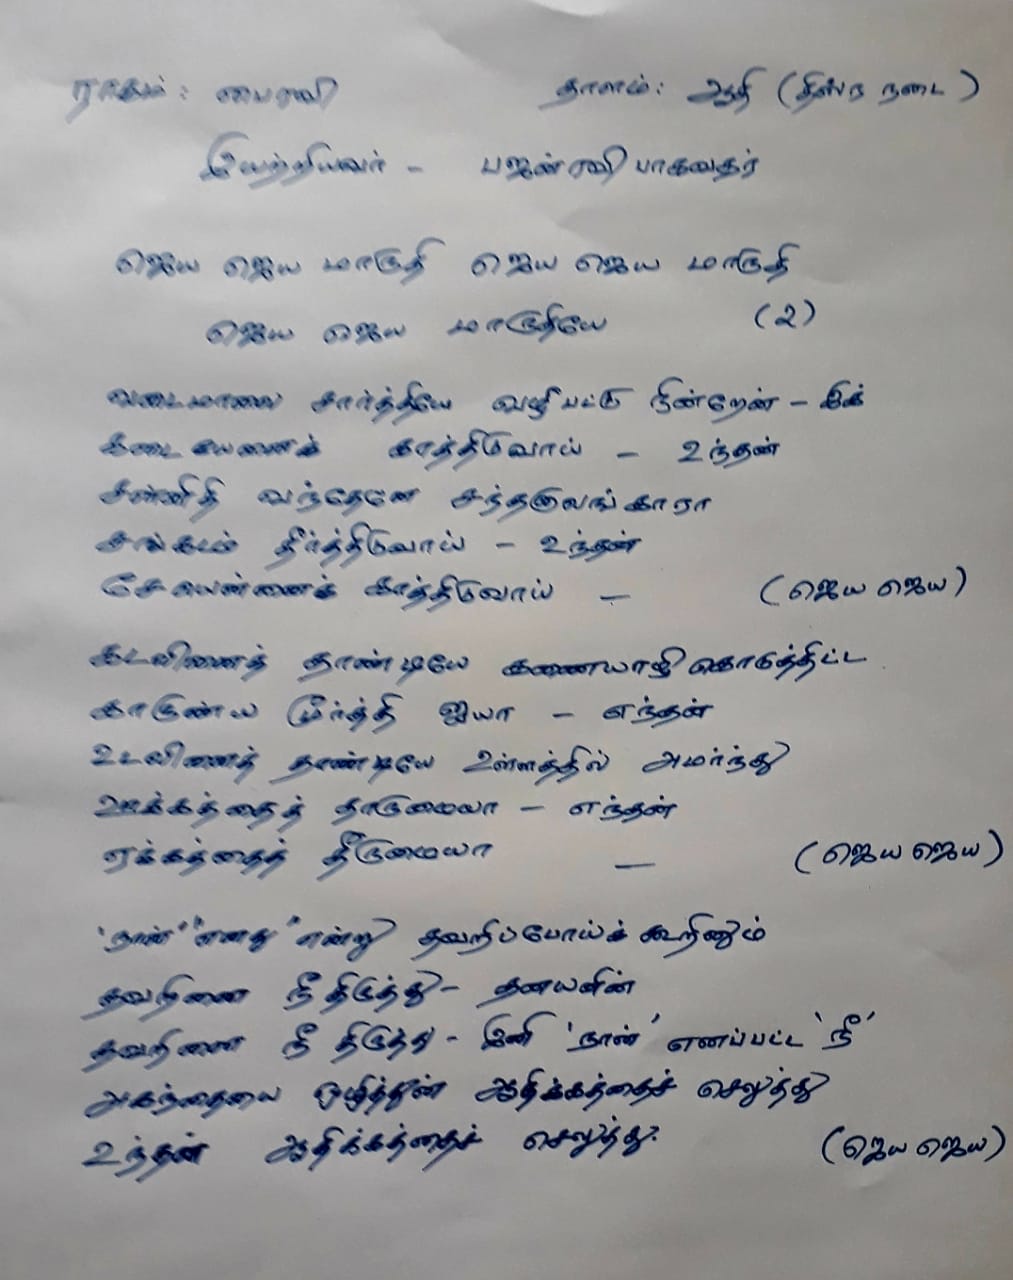 ராகம் : பைரவி தாளம் : ஆதி (திஸ்ர நடை)
இயற்றியவர் - பஜன் ரவி பாகவதர்
ஜெய ஜெய மாருதி ஜெய ஜெய மாருதி
ஜெய ஜெய மாருதியே (2)
வடைமாலை சார்த்தியே வழிபட்டு நின்றேன் - இக்
கடையனைக் காத்திடுவாய் - உந்தன்
சன்னிதி வந்தேனே
சங்கடம் தீர்த்திடுவாய் - உந்தன்
சேயென்னைக் காத்திடுவாய் - (ஜெய ஜெய)
கடலினைத் தாண்டியே கணையாழி கொடுத்திட்ட
காருண்ய மூர்த்தி ஐயா - எந்தன்
உடலினைத் தாண்டியே உள்ளத்தில் அமர்ந்து
ஊக்கத்தைத் தாருமையா - எந்தன்
ஏக்கத்தைத் தீருமையா - (ஜெய ஜெய)
'நான்' "எனது" என்று தவறிப்போய்க் கூறினும்
தவறினை நீ திருத்து - தனயனின்
தவறினை நீ திருத்து - இனி 'நான்' எனப்பட்ட 'நீ'
அகந்தையை ஒழித்துன் ஆதிக்கத்தைச் செலுத்து
உந்தன் ஆதிக்கத்தைச் செலுத்து. (ஜெய ஜெய)